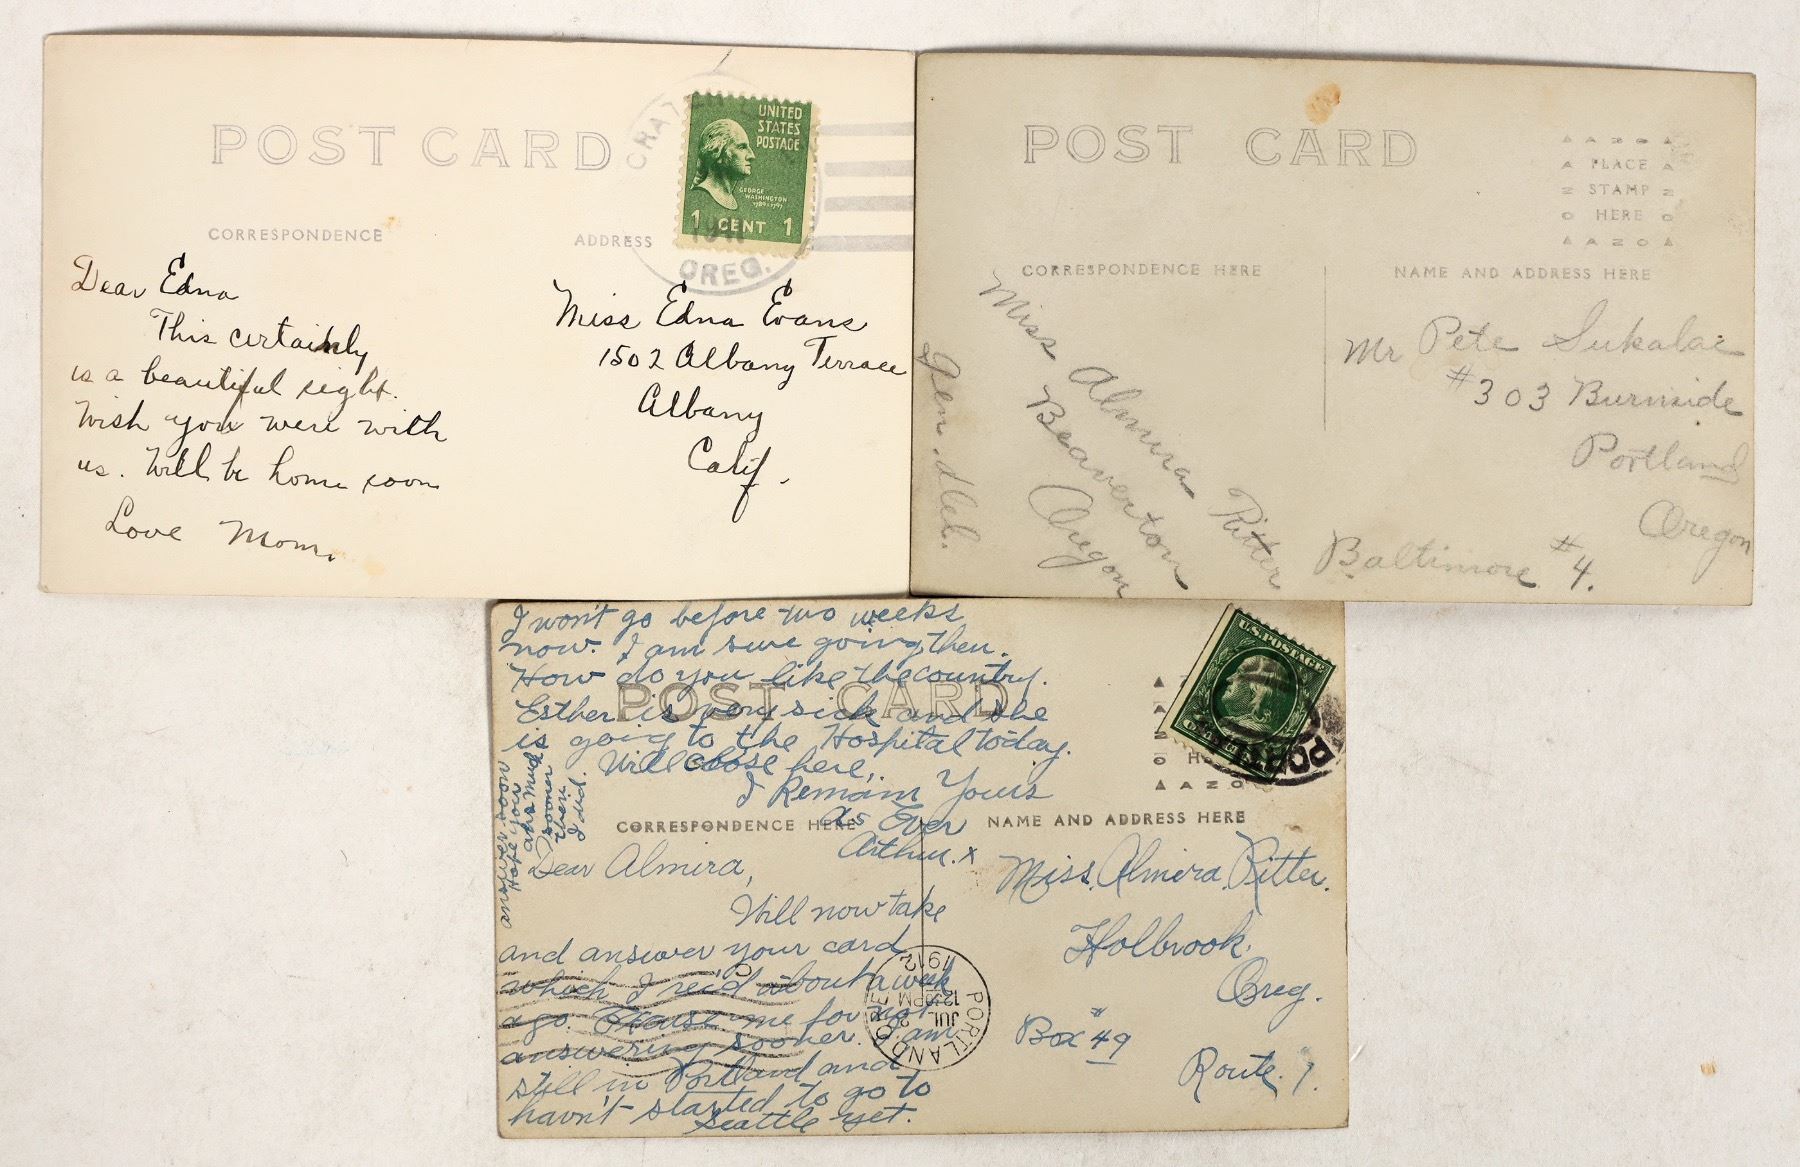 POST CARD
CORRESPONDENCE
ADDRESS
CRATER
OREG.
UNITED
STATES
POSTAGE
GEORGE
WASHINGTON
1789-1797
1 CENT 1
Dear Edna
This certainly
is a beautiful sight.
Wish you were with
us. Will be home soon
Love Mom.
Miss Edna Evans
1502 Albany Terrace
Albany
Calif.
POST CARD
AZO
PLACE
STAMP
HERE
AZO
CORRESPONDENCE HERE
NAME AND ADDRESS HERE
Miss Almira Ritter
Beaverton
Oregon
Gen. Del.
Mr Pete Sukalac
#303 Burnside
Portland
Oregon
Baltimore #4.
I won't go before two weeks
now. I am sure going then.
How do you like the country.
Esther is very sick and she
is going to the Hospital today.
Will close here,
I Remain Yours
As Ever
Arthur. x
answer soon
Hope you
ans much
sooner
then
I did.
POST CARD
U.S. POSTAGE
PORTL
AZO
CORRESPONDENCE HERE
NAME AND ADDRESS HERE
Dear Almira,
Will now take
and answer your card
which I rec'd about a week
ago. Excuse me for not
answering sooner. I am
still in Portland and
havn't started to go to
Seattle yet.
PORTLAND
JUL
12 30 PM
1912
Miss. Almira. Ritter.
Holbrook.
Oreg.
Box #49
Route. 1.